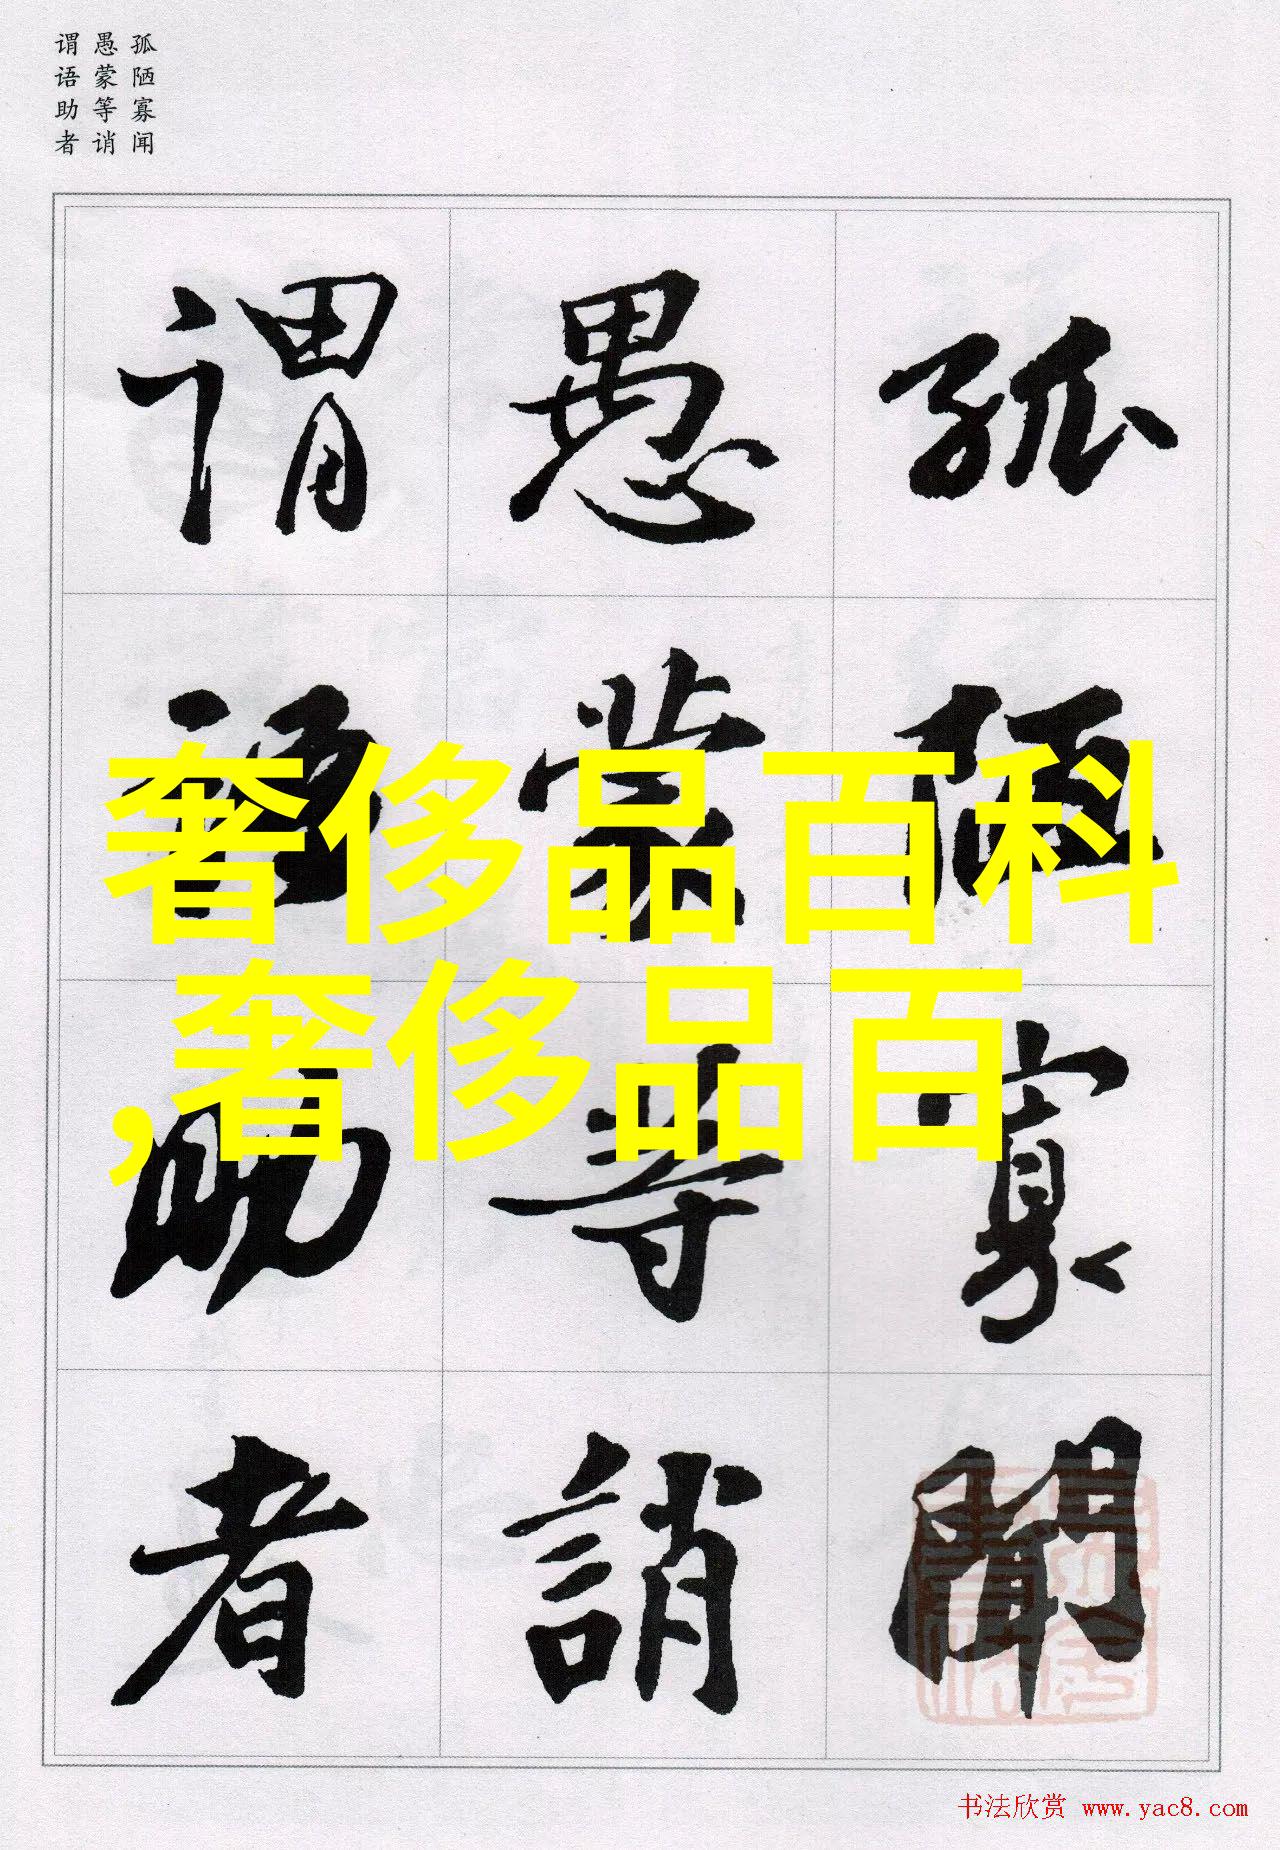 孤陋寡闻
愚蒙等诮
谓语助者
孤陋寡聞
愚蒙等誚
谓語助者
奢侈品百科
,奢侈品百
书法欣赏 www.yac8.com